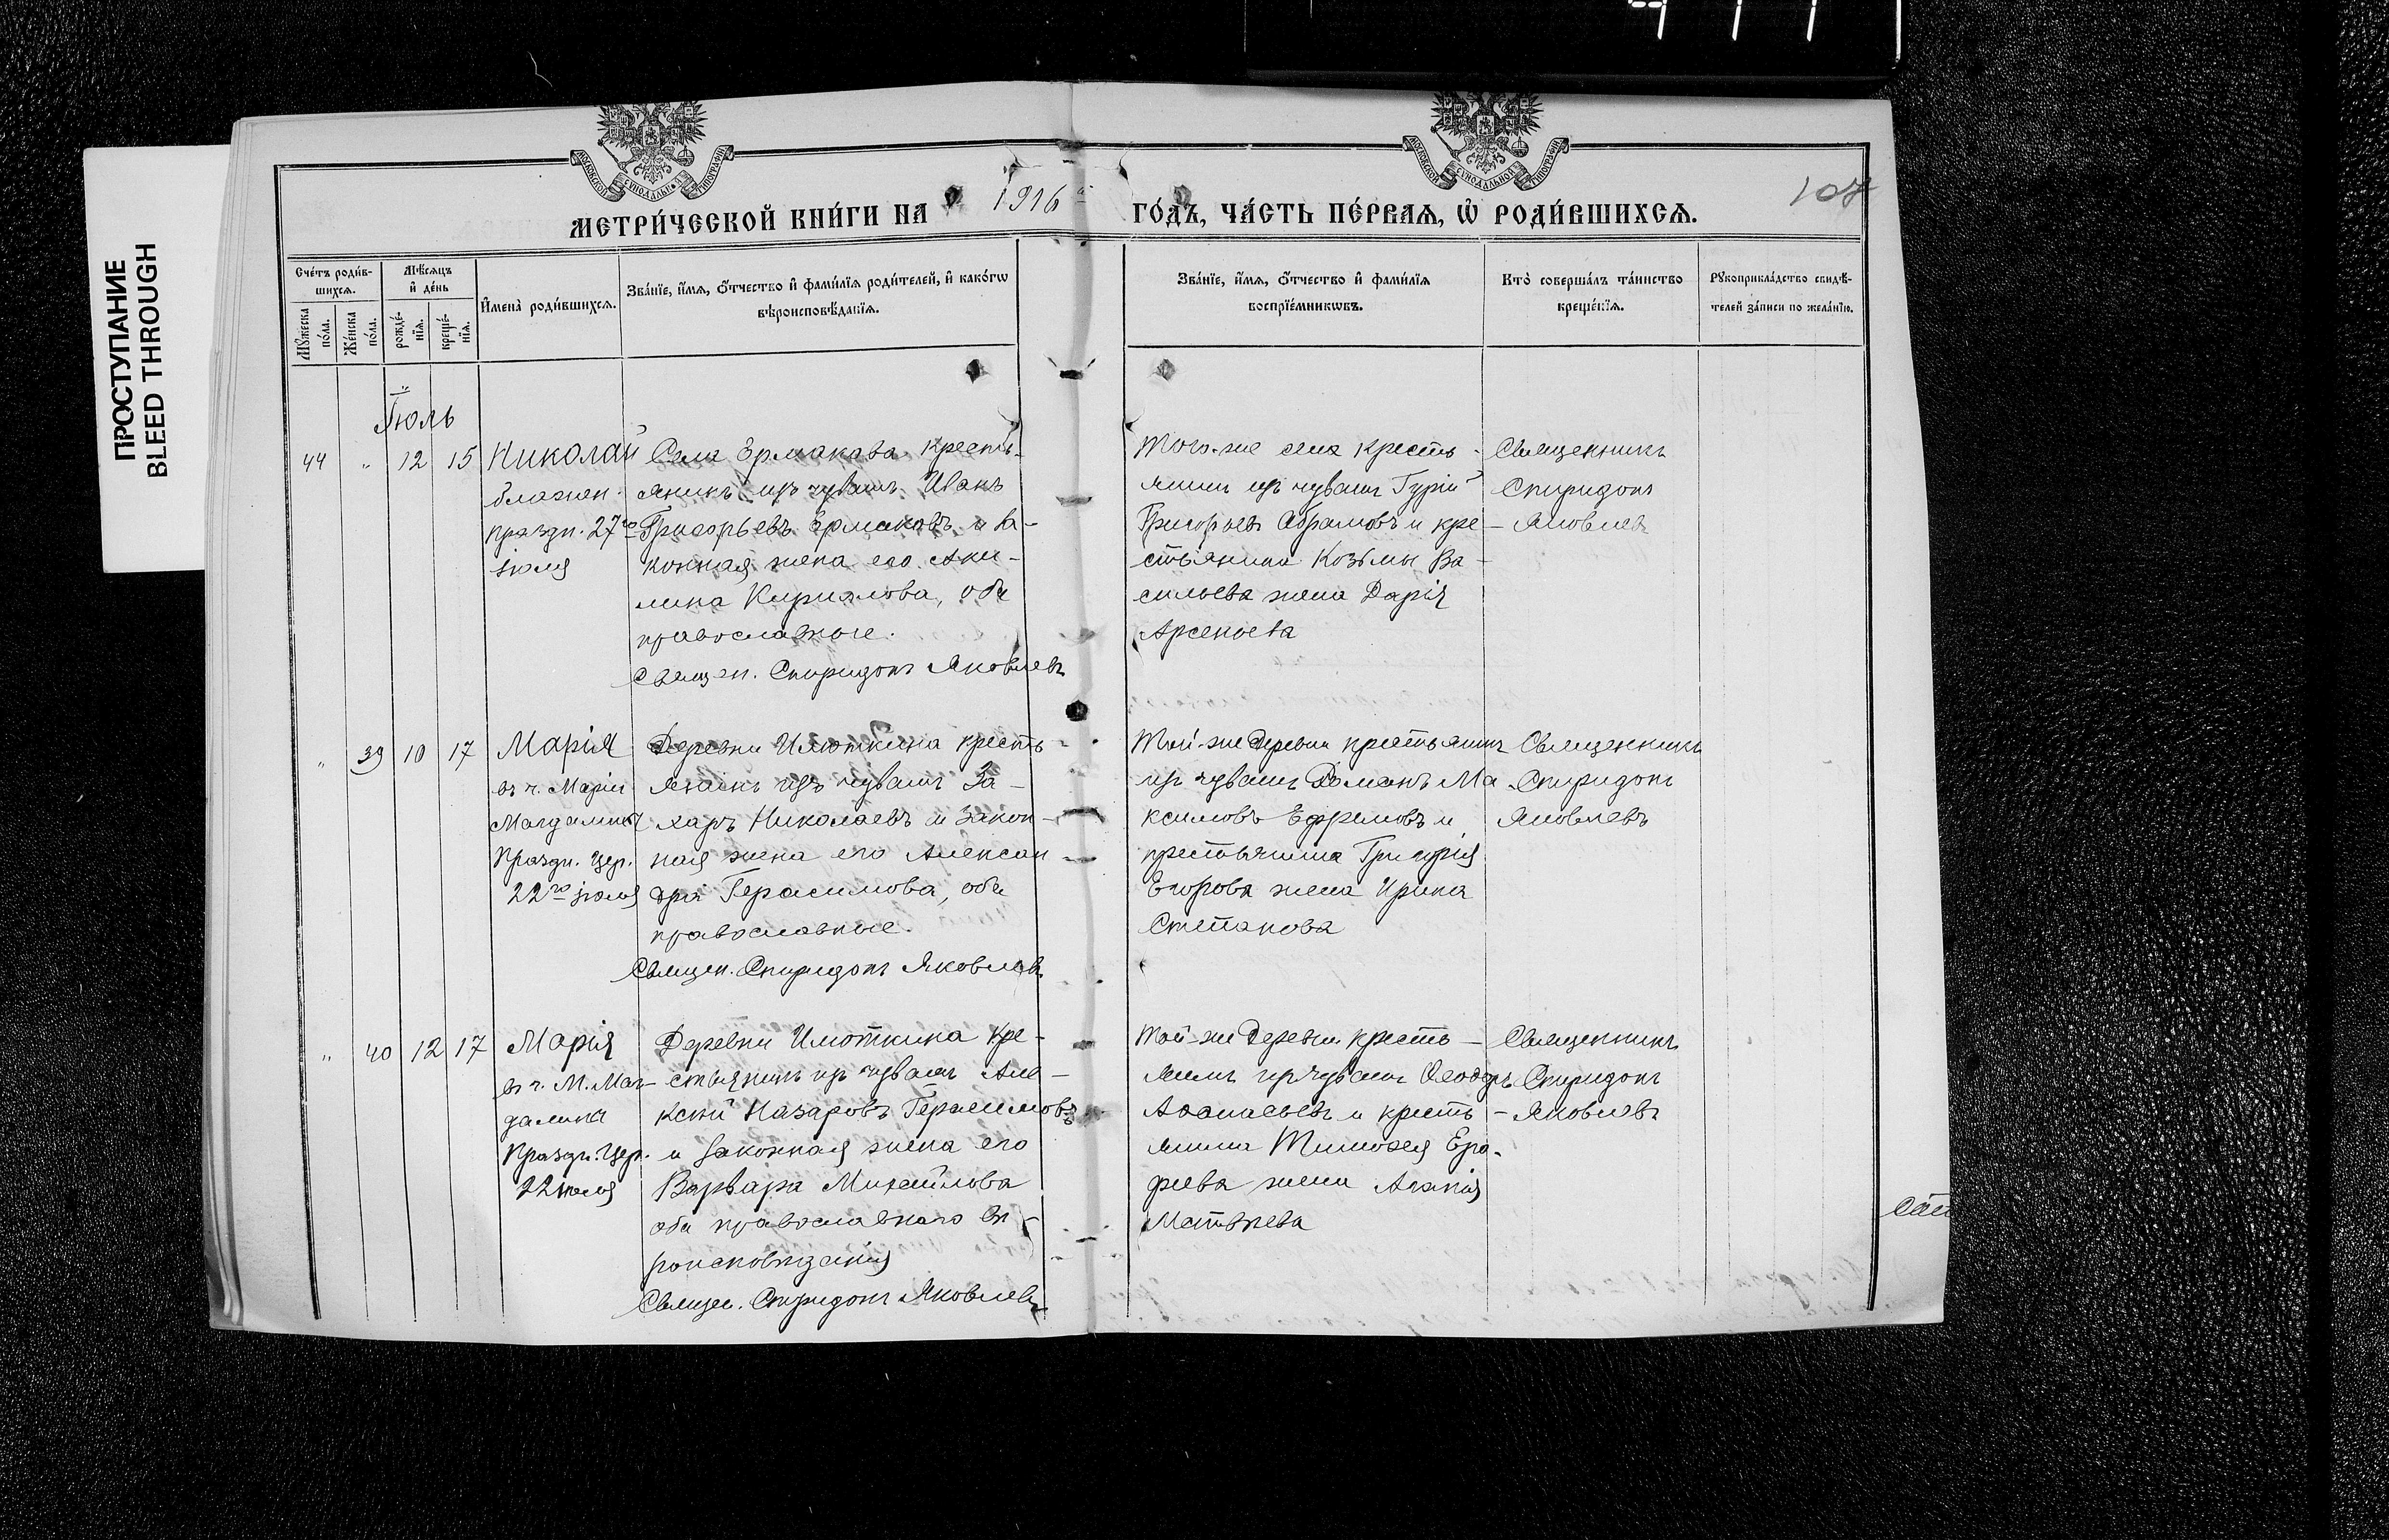 ПРОСТУПАНИЕ
BLEED THROUGH
МОСКОВСКОЙ СУНОДАЛЬНОЙ ТИПОГРАФІИ
МОСКОВСКОЙ СУНОДАЛЬНОЙ ТИПОГРАФІИ
107
МЕТРИ́ЧЕСКОЙ КНИ́ГИ НА 1916 ГО́ДЪ, ЧА́СТЬ ПЕ́РВАЯ, Ѡ РОДИ́ВШИХСЯ.
Сче́тъ роди́в-
шихся.
Мꙋ́жеска
по́ла.
Же́нска
по́ла.
Мѣ́сяцъ
и҆ де́нь
рожде́-
нїя.
креще́-
нїя.
И҆мена̀ роди́вшихся.
Зва́нїе, и҆́мя, ѻ҆́тчество и҆ фами́лїя роди́телей, и҆ како́гѡ
вѣроисповѣ́данїя.
Зва́нїе, и҆́мя, ѻ҆́тчество и҆ фами́лїя
воспрїе́мникѡвъ.
Кто̀ соверша́лъ та́инство
креще́нїя.
Рꙋкоприкла́дство свидѣ́-
телей за́писи по жела́нїю.
Іюль
44 " 12 15
Николай
блажен.
праздн. 27го
іюля
Села Ермакова кресть-
янинъ изъ чувашъ Иванъ
Григорьевъ Ермаковъ и за-
конная жена его Аки-
лина Кирилова, оба
православные.
Священ. Спиридонъ Яковлевъ
Того-же села кресть-
янинъ изъ чувашъ Гурій
Григорьевъ Абрамовъ и кре-
стьянина Козьмы Ва-
сильева жена Дарія
Арсеньева
Священникъ
Спиридонъ
Яковлевъ
" 39 10 17
Марія
въ ч. Маріи
Магдалины
Праздн. Цер.
22го іюля
Деревни Илюткина кресть-
янинъ изъ чувашъ За-
харъ Николаевъ и закон-
ная жена его Алексан
дра Герасимова, оба
православные.
Священ. Спиридонъ Яковлевъ
Той-же деревни крестьянинъ
изъ чувашъ Романъ Ма-
ксимовъ Ефремовъ и
крестьянина Григорія
Егорова жена Ирина
Степанова
Священникъ
Спиридонъ
Яковлевъ
" 40 12 17
Марія
въ ч. М. Маг-
далина
Праздн. Цер.
22 іюля
Деревни Илюткина кре-
стьянинъ изъ чувашъ Але-
ксѣй Назаровъ Герасимовъ
и законная жена его
Варвара Михайлова
оба православнаго вѣ-
роисповѣданія
Священ. Спиридонъ Яковлевъ
Той-же деревни кресть-
янинъ изъ чувашъ Ѳеодоръ
Аѳанасьевъ и кресть-
янина Тимоѳея Еро-
феева жена Агапія
Матвѣева
Священникъ
Спиридонъ
Яковлевъ